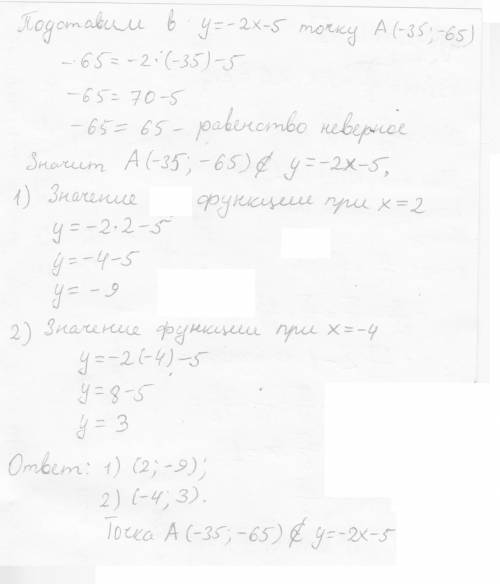 Подставим в y=-2x-5 точку A(-35;-65)
-65=-2·(-35)-5
-65=70-5
-65=65- равенство неверное
Значит A(-35; -65)∉ y=-2x-5,
1) Значение функции при x=2
y=-2·2-5
y=-4-5
y=-9
2) Значение функции при x=-4
y=-2(-4)-5
y=8-5
y=3
Ответ: 1) (2;-9);
2) (-4; 3).
Точка A(-35;-65)∉ y=-2x-5